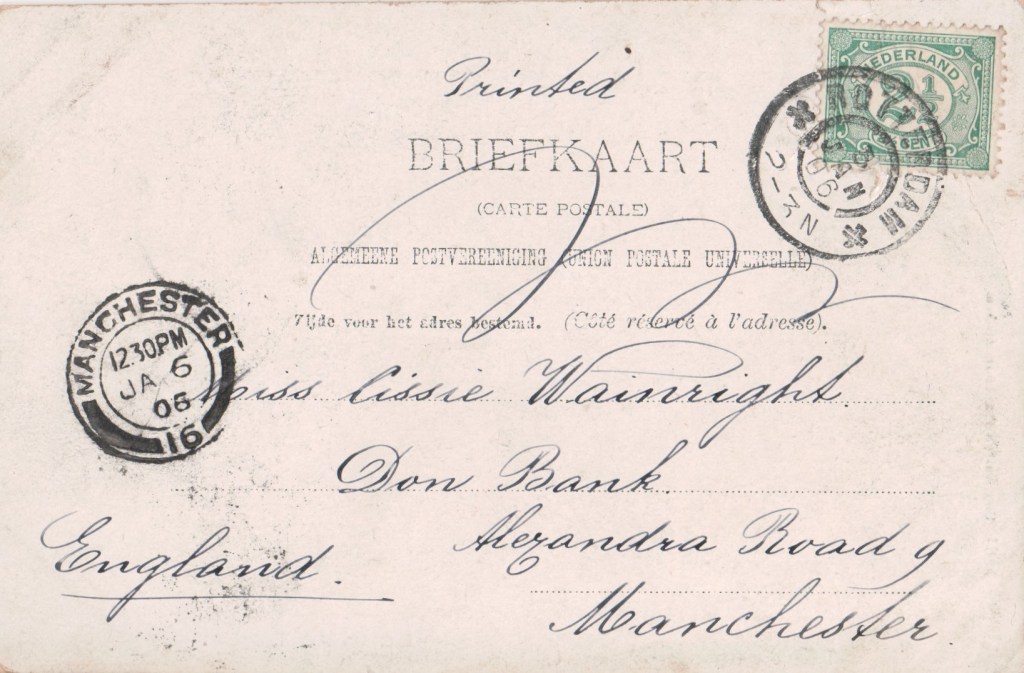 Printed
BRIEFKAART
(CARTE POSTALE)
ALGEMEENE POSTVEREENIGING (UNION POSTALE UNIVERSELLE)
Zijde voor het adres bestemd. (Côté réservé à l'adresse).
NEDERLAND
2½
CENT
ROTTERDAM
3
JAN
06
2-3 N
MANCHESTER
12 30PM
JA 6
06
16
Miss Cissie Wainright.
Don Bank.
Alexandra Road 9
Manchester.
England.